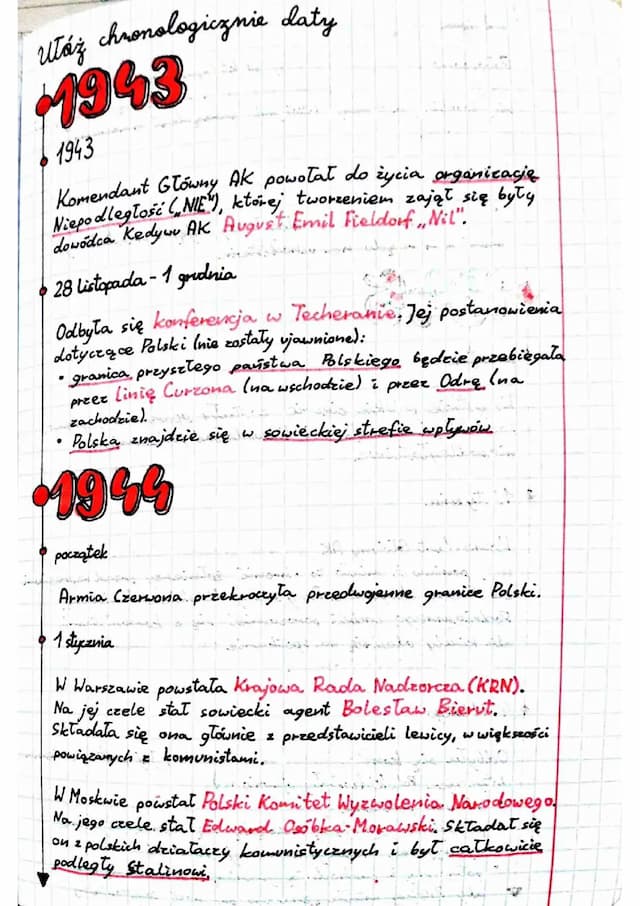 Ułóż chronologicznie daty
1943
1943
Komendant Główny AK powołał do życia organizację
Niepodległość („NIE"), której tworzeniem zajął się były
dowódca Kedywu AK August Emil Fieldorf „Nil".
28 listopada - 1 grudnia
Odbyła się konferencja w Techeranie. Jej postanowienia
dotyczące Polski (nie zostały ujawnione):
• granica przyszłego państwa Polskiego będzie przebiegała
przez Linię Curzona (na wschodzie) i przez Odrę (na
zachodzie).
• Polska znajdzie się w sowieckiej strefie wpływów
1944
początek
Armia Czerwona przekroczyła przedwojenne granice Polski.
1 stycznia
W Warszawie powstała Krajowa Rada Nadzorcza (KRN).
Na jej czele stał sowiecki agent Bolesław Bierut.
Składała się ona głównie z przedstawicieli lewicy, w większości
powiązanych z komunistami.
W Moskwie powstał Polski Komitet Wyzwolenia Narodowego.
Na jego czele stał Edward Osóbka-Morawski. Składał się
on z polskich działaczy komunistycznych i był całkowicie
podległy Stalinowi.